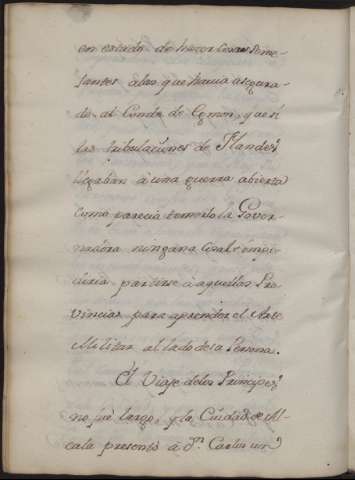 en estado de hacer cosas seme-
jantes a las que havia asegura-
do al Conde de Egmon, y asi si
las tribulaciones de Flandes
llegaban à una guerra abierta
como parecia temerlo la Gover-
nadora ninguna cosa le impi-
diria partirse à aquellas Pro
vincias para aprender el Arte
Militar al lado de su Persona.
El Viage de los Principes
no fue largo, y la Ciudad de Al-
cala presentò à Dn. Carlos un